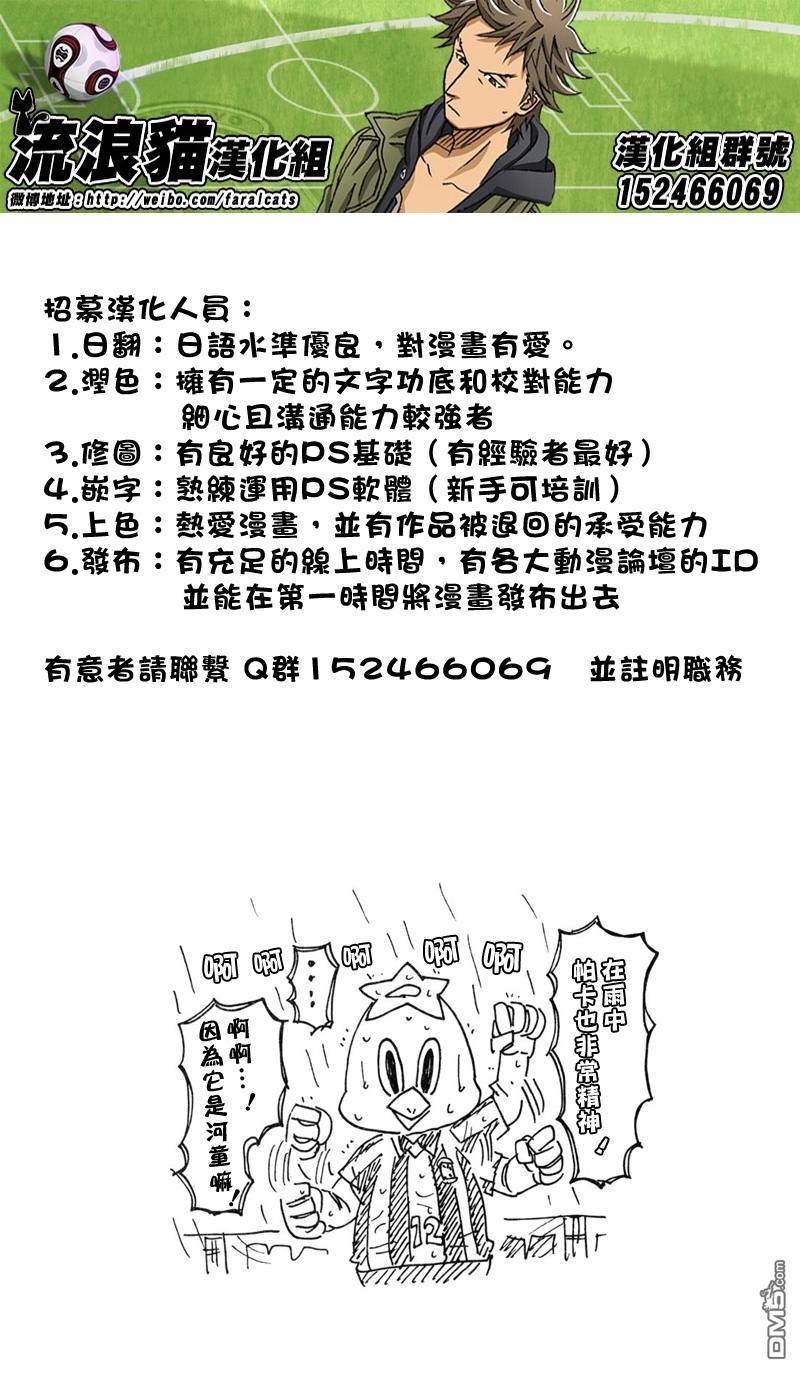 流浪貓漢化組
微博地址:http://weibo.com/faralcats
漢化組群號
152466069
招募漢化人員：
1.日翻：日語水準優良，對漫畫有愛。
2.潤色：擁有一定的文字功底和校對能力
細心且溝通能力較強者
3.修圖：有良好的PS基礎（有經驗者最好）
4.嵌字：熟練運用PS軟體（新手可培訓）
5.上色：熱愛漫畫，並有作品被退回的承受能力
6.發布：有充足的線上時間，有各大動漫論壇的ID
並能在第一時間將漫畫發布出去
有意者請聯繫 Q群152466069 並註明職務
在雨中
帕卡也非常精神！
啊
啊
啊
啊
啊
……
啊啊…！
因為它是河童嘛！
12
DM5.com